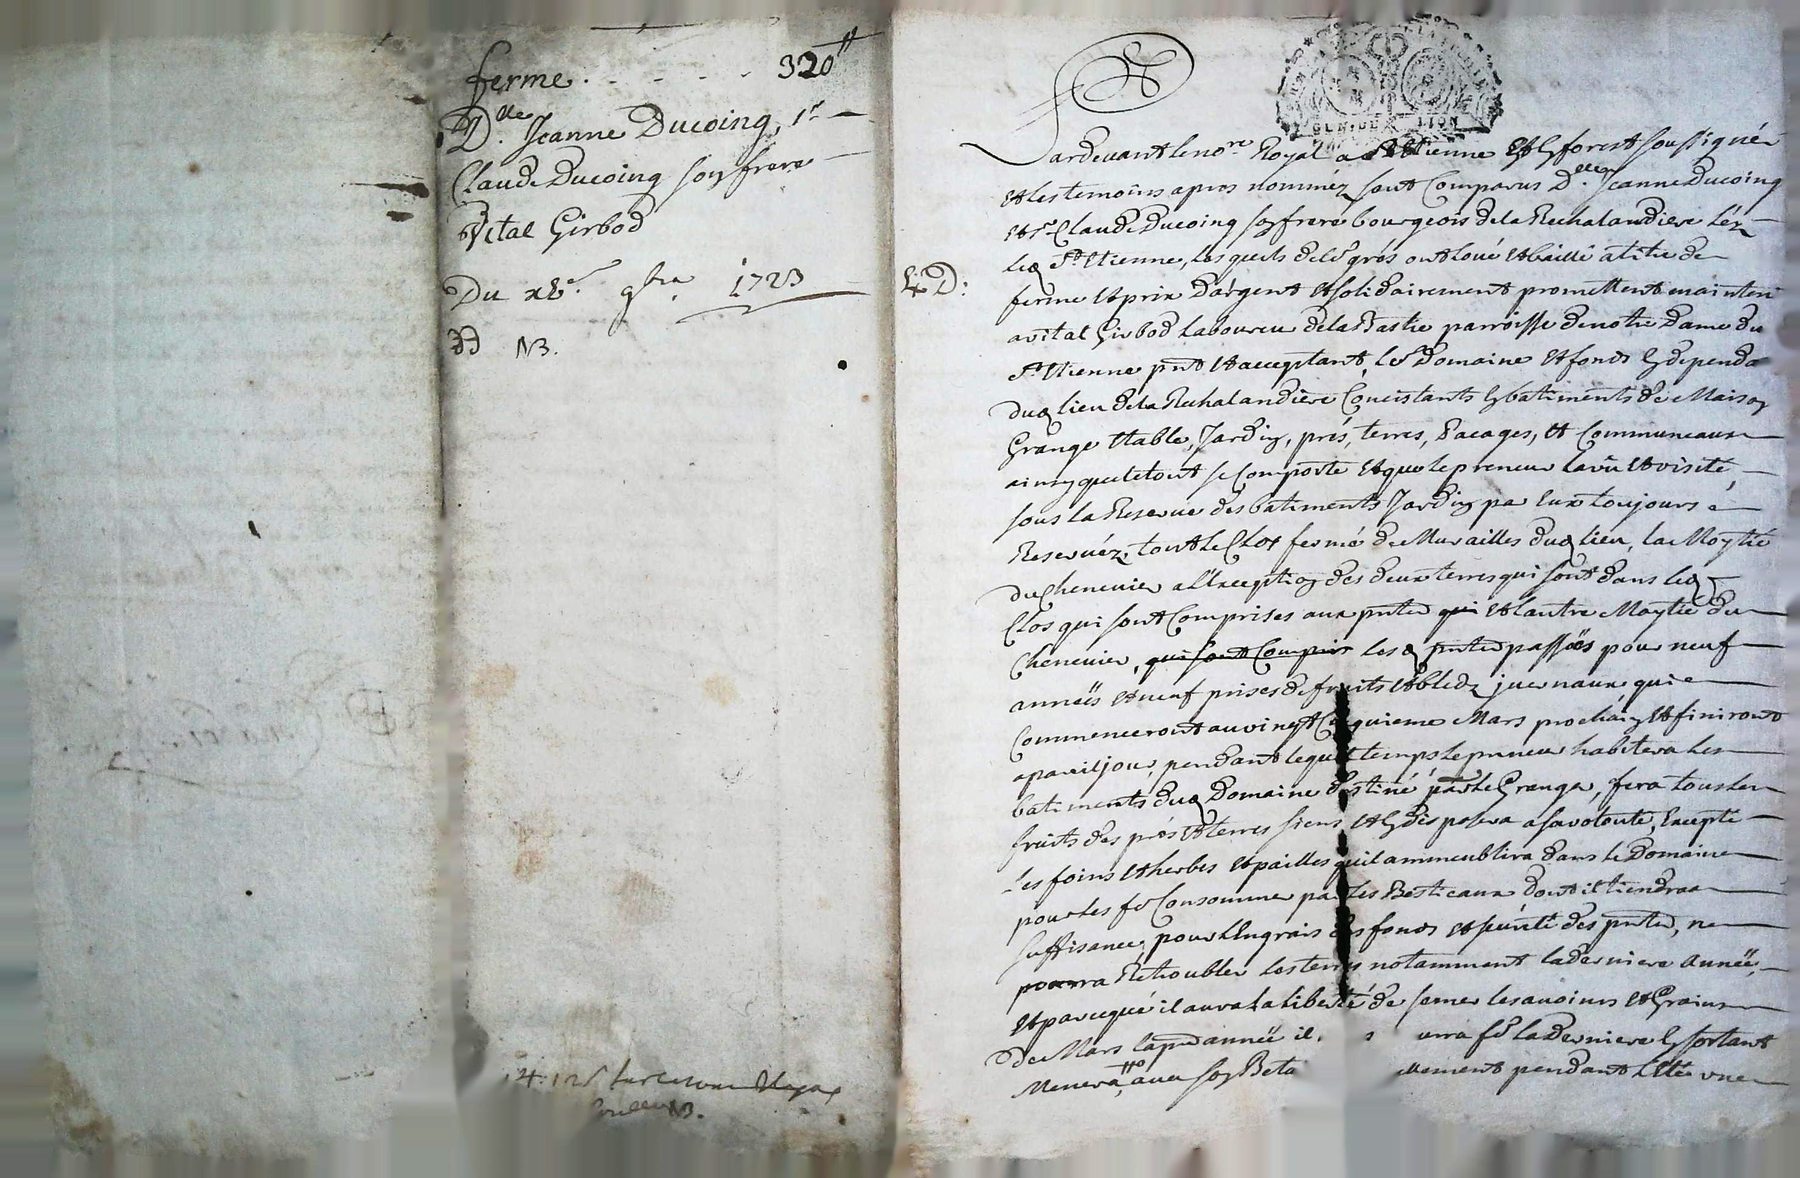 ferme . - - - - 320ᵗᵗ
Dˡˡᵉ Jeanne Ducoing, Sʳ
Claude Ducoing son frere
Vital Girbod
Du 9bre 1723
NB.
NB.
GEN. DE LION
Pardevant le nore Royal a St Etienne en forest soussigné
et les temoins apres nommez sont Comparus Dˡˡᵉ Jeanne Ducoing
et Sr Claude Ducoing son frere bourgeois de la Richalandiere Lez
St Etienne, lesquels de leur gré ont loué et baillé a titre de
ferme et prix d'argent et solidairement promettent maintenir
a vital Girbod Laboureur de la Bastie parroisse de notre Dame du
St Etienne pnt et acceptant, le Domaine et fonds en dependa
dud lieu de la Richalandière Concistants en batiments de Maison
Grange Etable, Jardin, prés, terres, Pacages, et Communeaux
ainsy que le tout se Comporte et que le preneur la vû et visité,
sous la Reserve des batiments Jardin par Eux toujours
Reservéz, tout le Clos fermé de Murailles dud lieu, la Moytié
du Chenevier a l'Exception des deux terres qui sont dans led
Clos qui sont Comprises aux pntes qui et lautre Moytié du
Chenevier, qui sont Compris les d pntes passées pour neuf
années et neuf prises de fruits et bleds jvernaux qui
Commenceront au vingt Cinquieme Mars prochain et finiront
a pareil jour, pendant lequel temps le preneur habitera les
batiments dud Domaine destiné par le Granger, fera tous les
fruits des prés et terres siens et en disposera a sa volonté, Excepté
les foins et herbes et pailles quil ammeublira dans le Domaine
pour les fe Consommer par les Bestieaux dont il tiendra
suffisance, pour l'Engrais des fonds et sureté des pntes, ne
pourra Retroubler les terres notamment la derniere année,
et parceque il aura la liberté de semer les avoines et Grains
De Mars la pre année il urra fe la derniere En sortant
Menera avec son Beta uement pendant l'Eté une